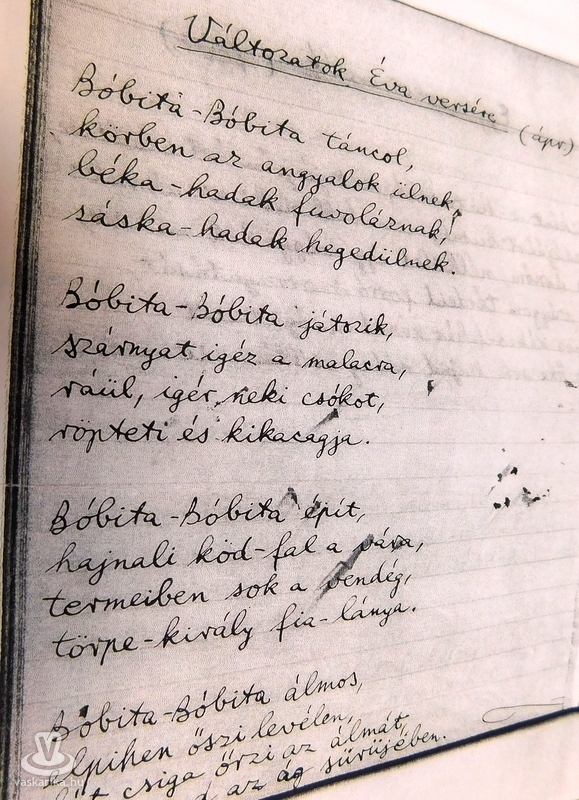 Változatok Éva versére (ápr)
Bóbita-Bóbita táncol,
körben az angyalok ülnek,
béka-hadak fuvoláznak,
sáska-hadak hegedülnek.
Bóbita-Bóbita játszik,
szárnyat igéz a malacra,
ráül, igér neki csókot,
röpteti és kikacagja.
Bóbita-Bóbita épít,
hajnali köd-fal a vára,
termeiben sok a vendég,
törpe-király fia-lánya.
Bóbita-Bóbita álmos,
elpihen őszi levélen,
két csiga őrzi az álmát,
az ág sürüjében.
vaskarika.hu